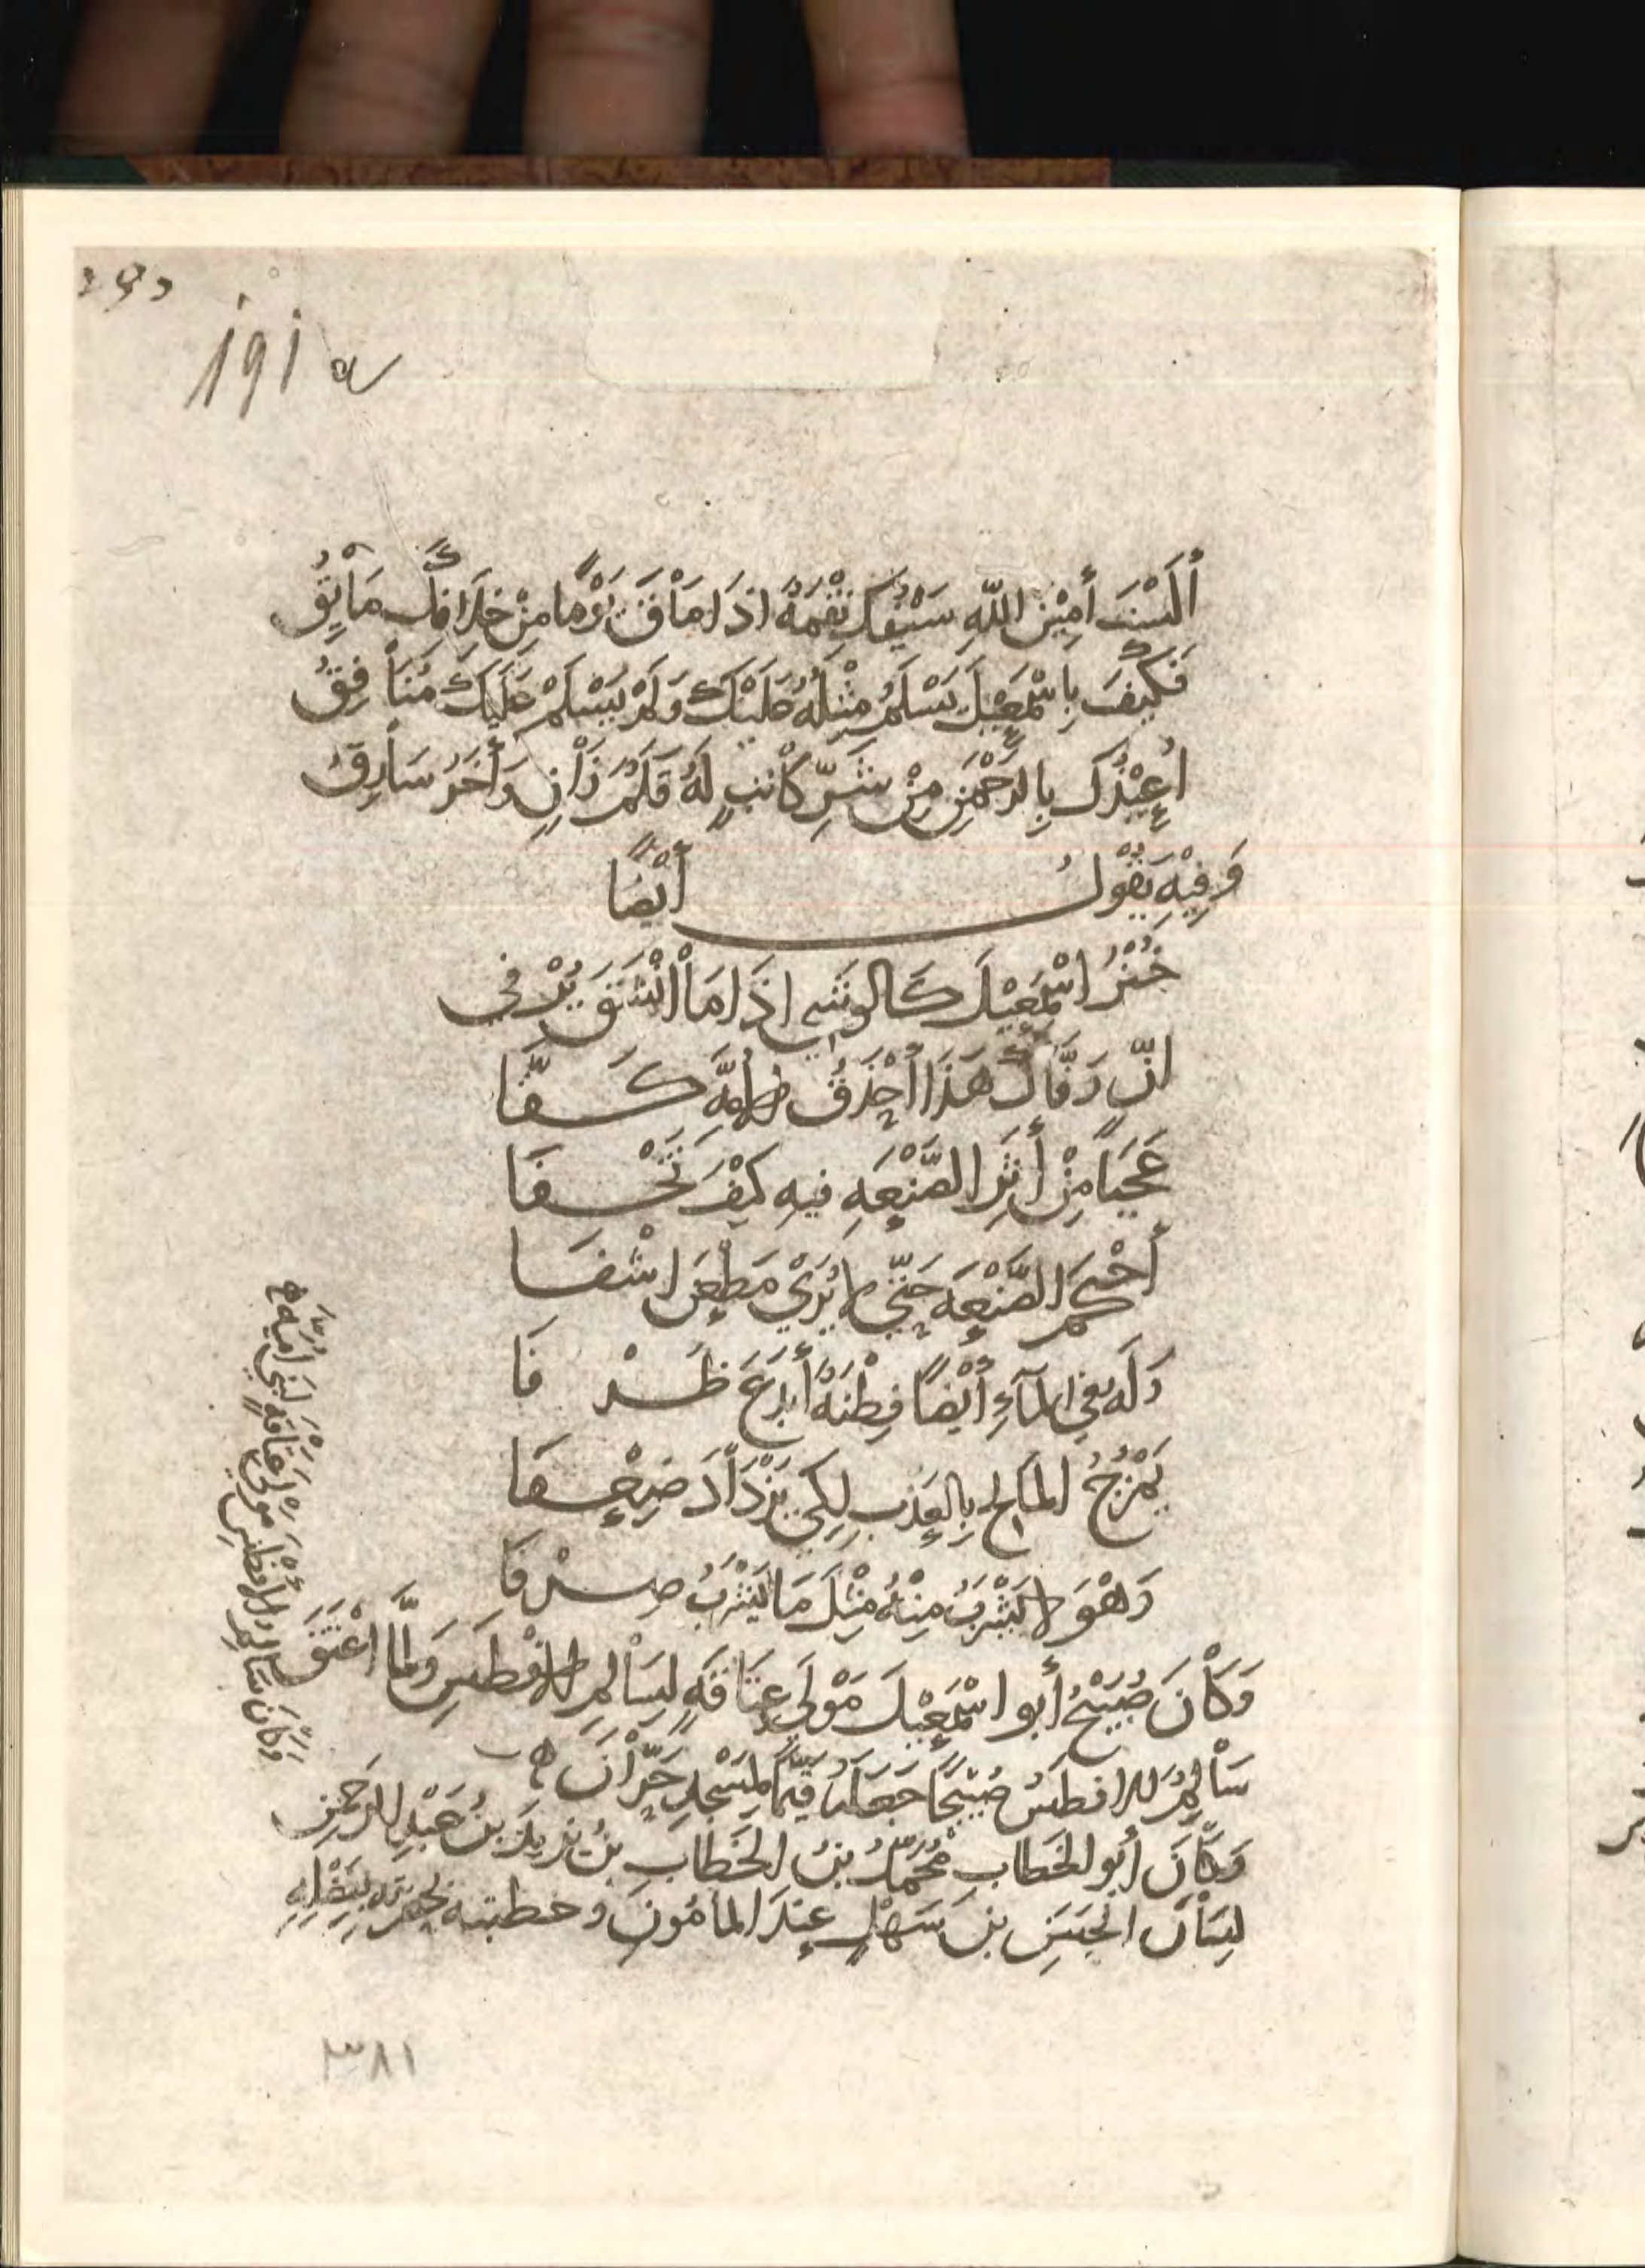 ١٩١
أَلَسْتَ أَمِيْنَ اللّٰهِ سَيْفُكَ نِقْمَةٌ اذَا مَاْقَ يَوْمًا مِنْ خِلَافِكَ مَاْئِقُ
فَكَيْفَ بِاسْمٰعِيْلَ يَسْلَمُ مِثْلُهُ عَلَيْكَ وَلَمْ يَسْلَمْ عَلَيْكَ مُنَاْفِقُ
اُعِيْذُكَ بِالرَّحْمٰنِ مِنْ شَرِّ كَاْتِبٍ لَهُ قَلَمٌ زَاْنٍ وَأٰخَرُ سَاْرِقُ
وَفِيْهِ يَقُوْلُ أَيْضًا
خُبْزُ اسْمٰعِيْلَ كَالوَشْيِ اذَا مَاْ انْشَقَّ يُرْفَى
انَّ رَفَّاكَ هَذَا أحْذَقُ الأُمَّةِ كَفَّا
عَجَبًا مِنْ أَثَرِ الصَّنْعَهِ فيهِ كَيْفَ تَخْفَا
أَحْكَمَ الصَّنْعَهَ حَتَّى لا يُرَىْ مَطْعَنُ اشْفَا
وَلَهُ فِي المَآءِ أَيْضًا فِطْنَةٌ أَبْدَعَ ظَرْفَا
يَمْزُجُ المَالِحَ بِالعَذْبِ لِكَي يَزْدَاْدَ ضِعْفَا
وَهْوَ لا يَشْرَبُ مِنْهُ مِثْلَ مَا يَشْرَبُ صِرْفَا
وَكَاْنَ صُبَيْحٌ أَبو اسْمٰعِيْلَ مَوْلَى عِتَاقَةٍ لِسَاْلِمِ الأَفْطَسِ وَلَمَّا اعْتَقَ
سَاْلِمُ الافطَسُ صُبَيْحًا جَعَلَهُ قَيِّمًا لِمَسْجِدِ حَرَّاْنَ
وَكَاْنَ أَبو الخَطابِ مُحَمَّدُ بْنُ الخَطابِ بْنِ يَزِيدَ بنِ عَبْدِ الرَحْمٰنِ
لِسَاْنَ الحَسَنِ بْنِ سَهْلٍ عِنْدَ المأمُونِ وخطبته
وَكَانَ سَالِمُ الأفطَسِ مَوْلَى عتَاقَةٍ لِبَنِي أُمَيَّهَ
٣٨١